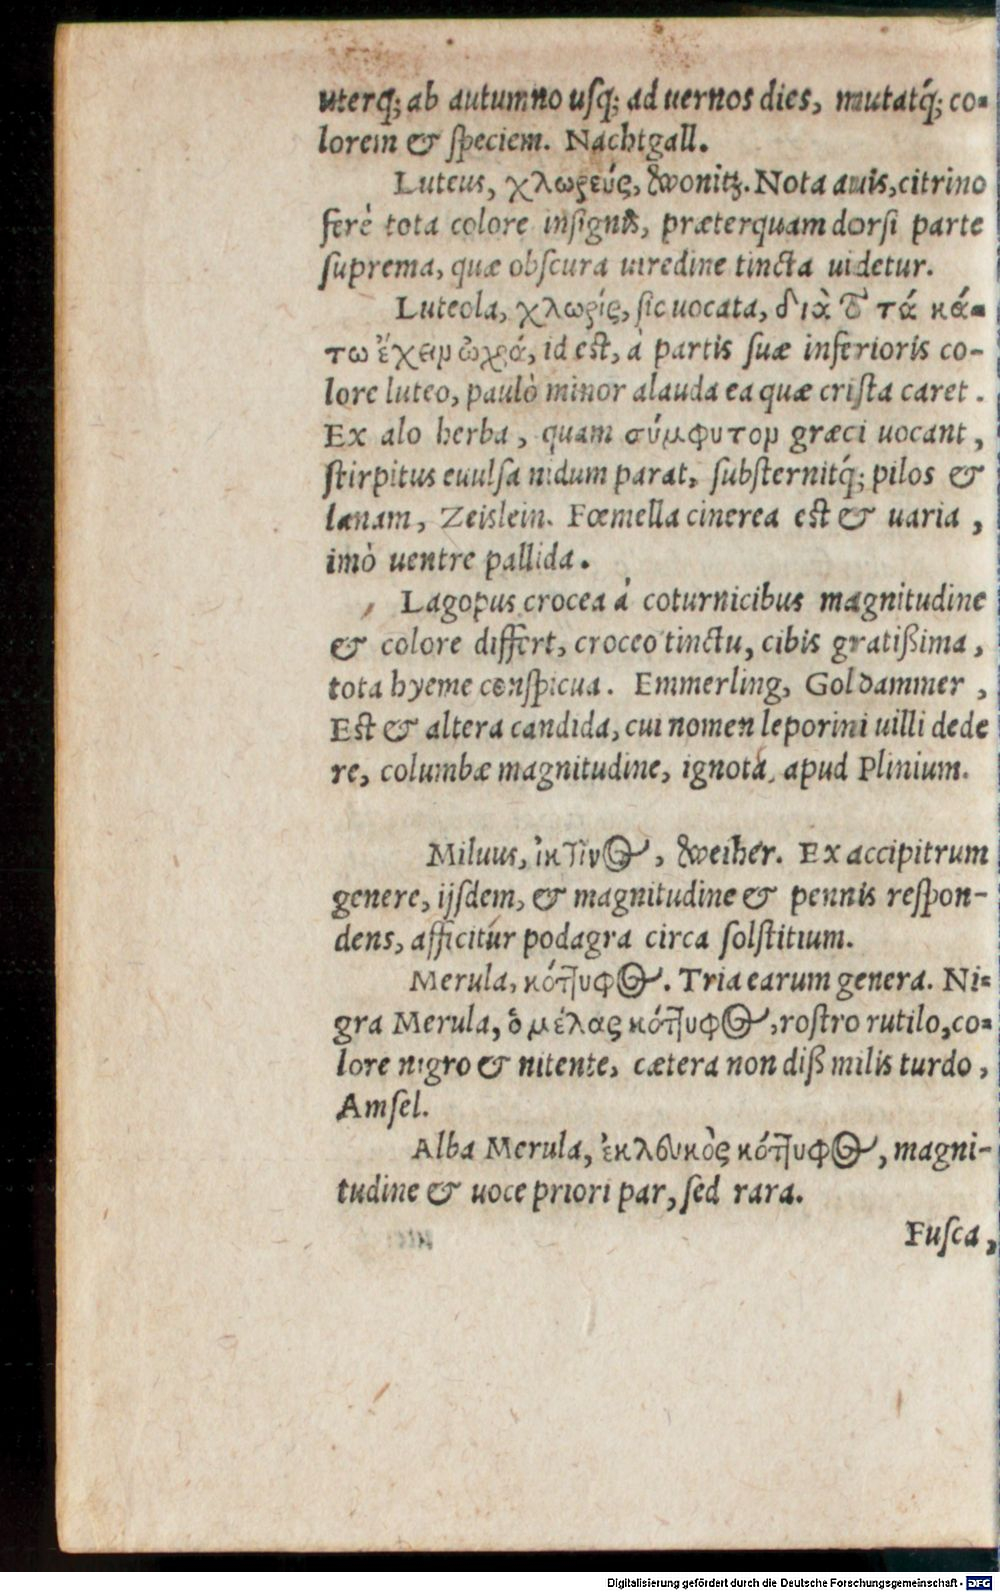 uterq; ab autumno usq; ad uernos dies, mutatq́; co-
lorem & speciem. Nachtgall.
Luteus, χλωρεύς, Gwonitz. Nota auis, citrino
ferè tota colore insignis, præterquam dorsi parte
suprema, quæ obscura uiredine tincta uidetur.
Luteola, χλωρίς, sic uocata, διὰ τὸ τά κά-
τω ἔχειν ὠχρά, id est, à partis suæ inferioris co-
lore luteo, paulò minor alauda ea quæ crista caret.
Ex alo herba, quam σύμφυτον græci uocant,
stirpitus euulsa nidum parat, substernitq́; pilos &
lanam, Zeislein. Fœmella cinerea est & uaria,
imò uentre pallida.
Lagopus crocea à coturnicibus magnitudine
& colore differt, croceo tinctu, cibis gratißima,
tota hyeme conspicua. Emmerling, Goldammer,
Est & altera candida, cui nomen leporini uilli dede
re, columbæ magnitudine, ignota, apud Plinium.
Miluus, ἰκτῖνος, Gweiher. Ex accipitrum
genere, ijsdem, & magnitudine & pennis respon-
dens, afficitur podagra circa solstitium.
Merula, κότῖυφος. Tria earum genera. Ni-
gra Merula, ὁ μέλας κότῖυφος, rostro rutilo, co-
lore nigro & nitente, cætera non dißimilis turdo,
Amsel.
Alba Merula, ἐκλευκὸς κότῖυφος, magni-
tudine & uoce priori par, sed rara.
Fusca,
Digitalisierung gefördert durch die Deutsche Forschungsgemeinschaft - DFG